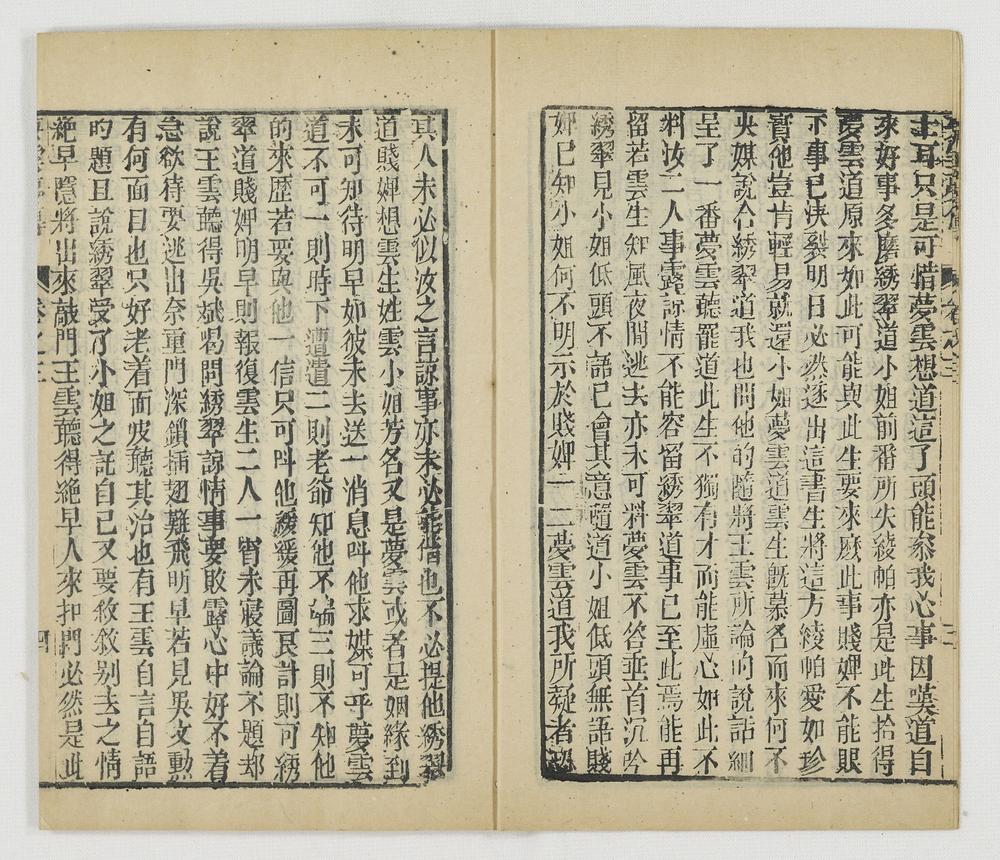 卷之三
主耳只是可惜夢雲想道這了頭能叅我心事因嘆道自
來好事多磨綉翠道小姐前番所失綾帕亦是此生拾得
夢雲道原來如此可能與此生要來麽此事賤婢不能眼
下事已決裂明日必然逐出這書生將這方綾帕愛如珍
寶他豈肯輕易就還小姐夢雲道雲生旣慕名而來何不
央媒說合綉翠道我也問他的隨將王雲所論的說話細
呈了一番夢雲聽罷道此生不獨有才而能虛心如此不
料汝二人事露諒情不能容留綉翠道事已至此焉能再
留若雲生知風夜間逃去亦未可料夢雲不答垂首沉吟
綉翠見小姐低頭不語已會其意隨道小姐低頭無語賤
婢已知小姐何不明示於賤婢一二夢雲道我所疑者恐
其人未必似汝之言諒事亦未必能偕也不必提他綉翠
道賤婢想雲生姓雲小姐芳名又是夢雲或者是姻緣到
未可知待明早如彼未去送一消息呌他求媒可乎夢雲
道不可一則時下遭遣二則老爺知他不端三則不知他
的來歷若要與他一信只可呌他緩緩再圖良計則可綉
翠道賤婢明早則報復雲生二人一宵未寢議論不題却
說王雲聽得吳斌喝問綉翠諒情事要敗露心中好不着
急欲待要逃出奈重門深鎖揷翅難飛明早若見吳文勳
有何面目也只好老着面皮聽其治也有王雲自言自語
的題且說綉翠受了小姐之託自己又要敘敘别去之情
絶早隱將出來敲門王雲聽得絶早人來扣門必然是此
卷之三 四